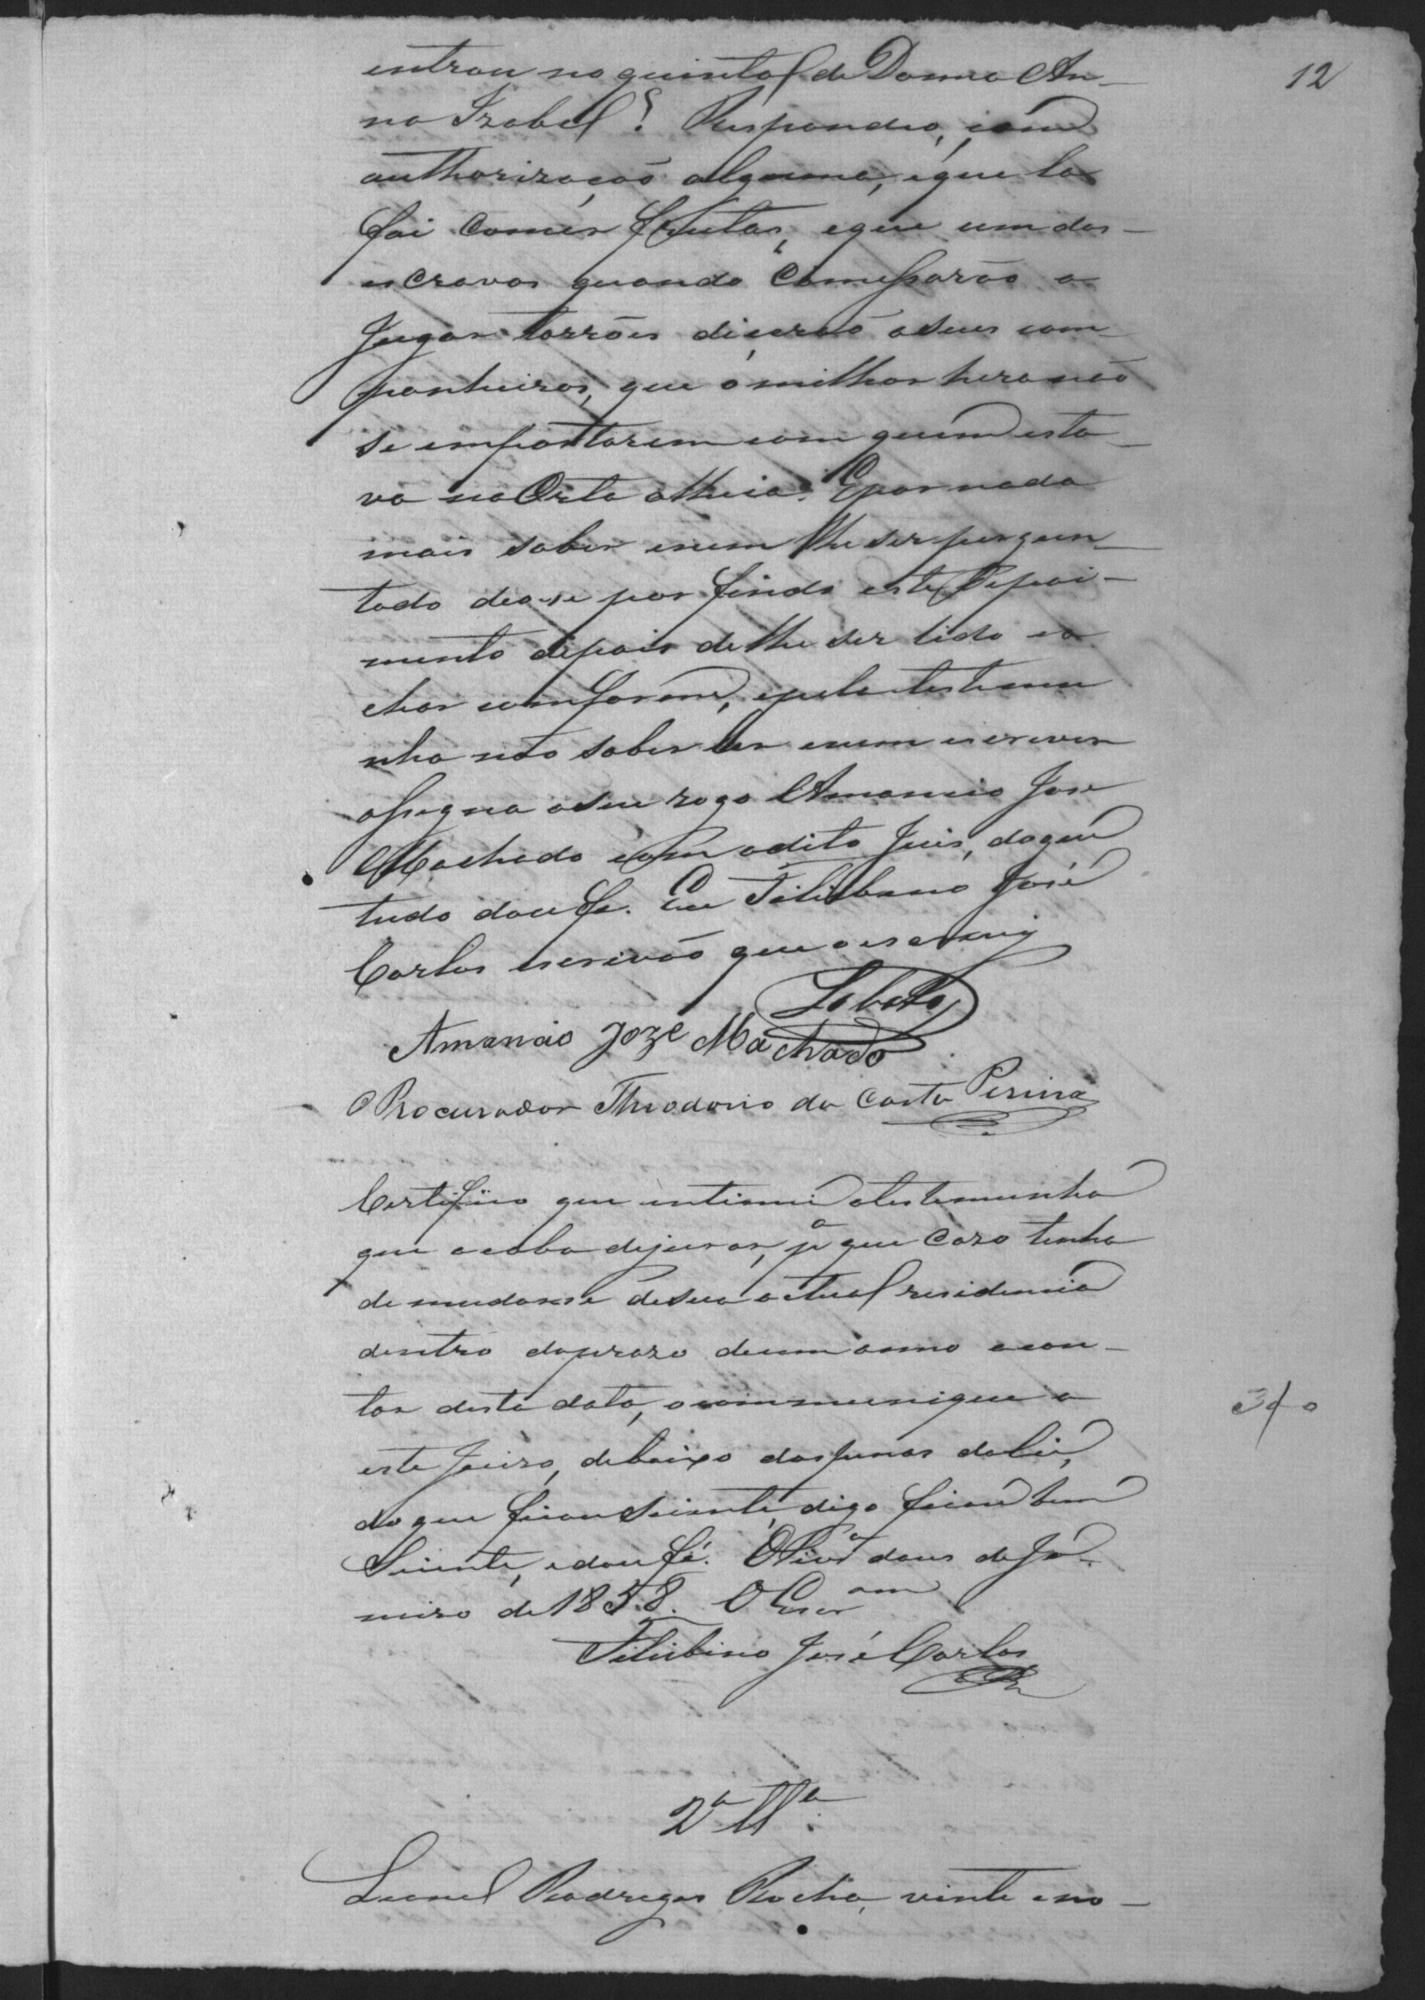 12
entrou no quintal de Donna An-
na Izabel? Respondeo, sem
authorização alguma, e que la
foi comer frutas, e que um dos
escravos quando começarão a
jugar torrões diserão a seus com-
panheiros, que o milhor hera não
se emportarem com quem esta-
va na Orta alheia. E por nada
mais saber e nem lhe ser pergun-
tado deo-se por findo este Depoi-
mento depois de lhe ser lido e a
char comforme, e pela testemu
nha não saber ler e nem escrever
assigna a seu rogo Amancio Jose
Machado com o dito Juis, do que
tudo dou fe. Eu Felisbino José
Carlos escrivão que o escrevy
Lobato
Amancio Joze Machado
O Procurador Theodorio da Costa Perira
Certifico que intimei a testemunha
que acaba de jurar, pª que cazo tenha
de mudarse de sua actual residencia
dentro do prazo de um anno a con-
tar desta data, o communique a
este Juizo, debaixo das penas da lei,
do que ficou sciente, digo ficou bem
Sciente, e dou fé. dous de Ja-
neiro de 1858. O Escr am
Felisbino José Carlos
2ª Tª
Leonel Rodrigues Rocha, vinte e no-